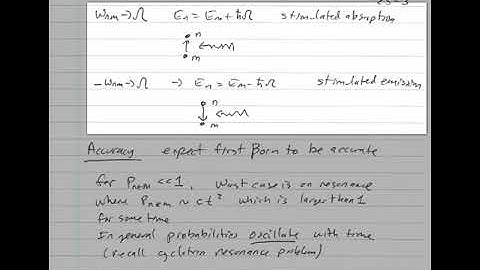 ω_nm → Ω   E_n = E_m + ħΩ   stimulated absorption
n
m
-ω_nm → Ω   → E_n = E_m - ħΩ   stimulated emission
n
m
Accuracy   expect first Born to be accurate
for P_n←m << 1.   Worst case is on resonance
where P_n←m ~ ct² which is larger than 1
for some time
In general probabilities oscillate with time
(recall cyclotron resonance problem)